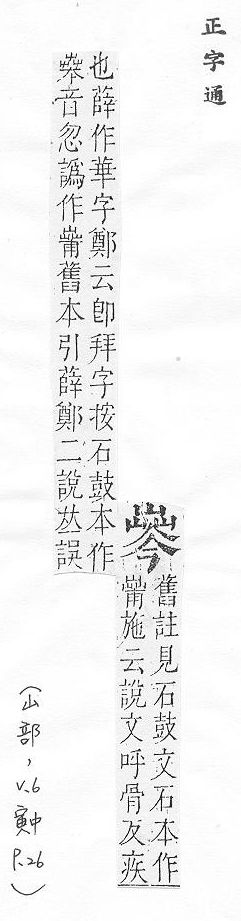 正字通
舊註見石鼓文石本作
施云說文呼骨反疾
也薛作華字鄭云卽拜字按石鼓本作
音忽譌作舊本引薛鄭二說𠀤誤
(山部，V.6 寅中 P.26)